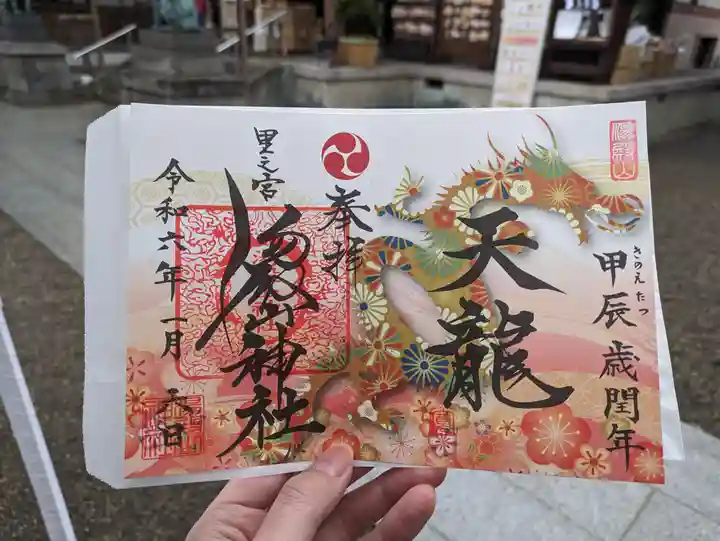 湯殿山
甲辰歳閏年
きのえたつ
天龍
参拝
里之宮
湯殿山神社
令和六年一月 日